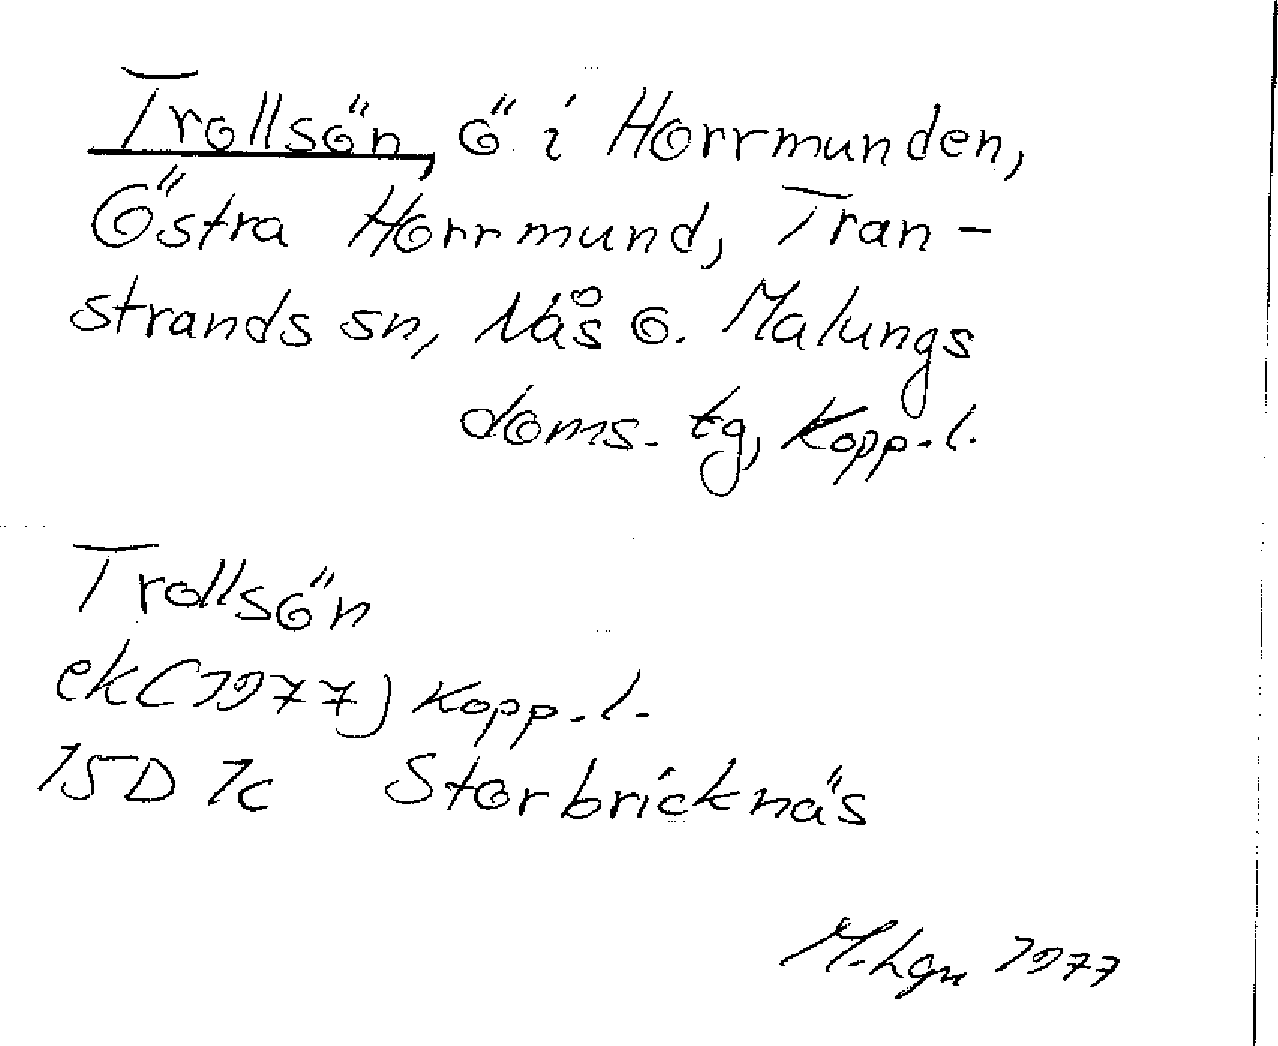 Trollsön, ö i Horrmunden,
Östra Horrmund, Tran-
strands sn, Nås o. Malungs
doms. tg, Kopp. l.
Trollsön
ek (1977) Kopp. l.
15D 7c Storbricknäs
M. Lgn 1977